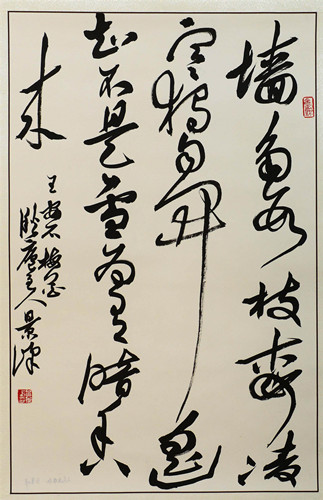 墙角数枝梅凌
寒独自开遥
知不是雪为有暗香
来
王安石梅花
庐主人景